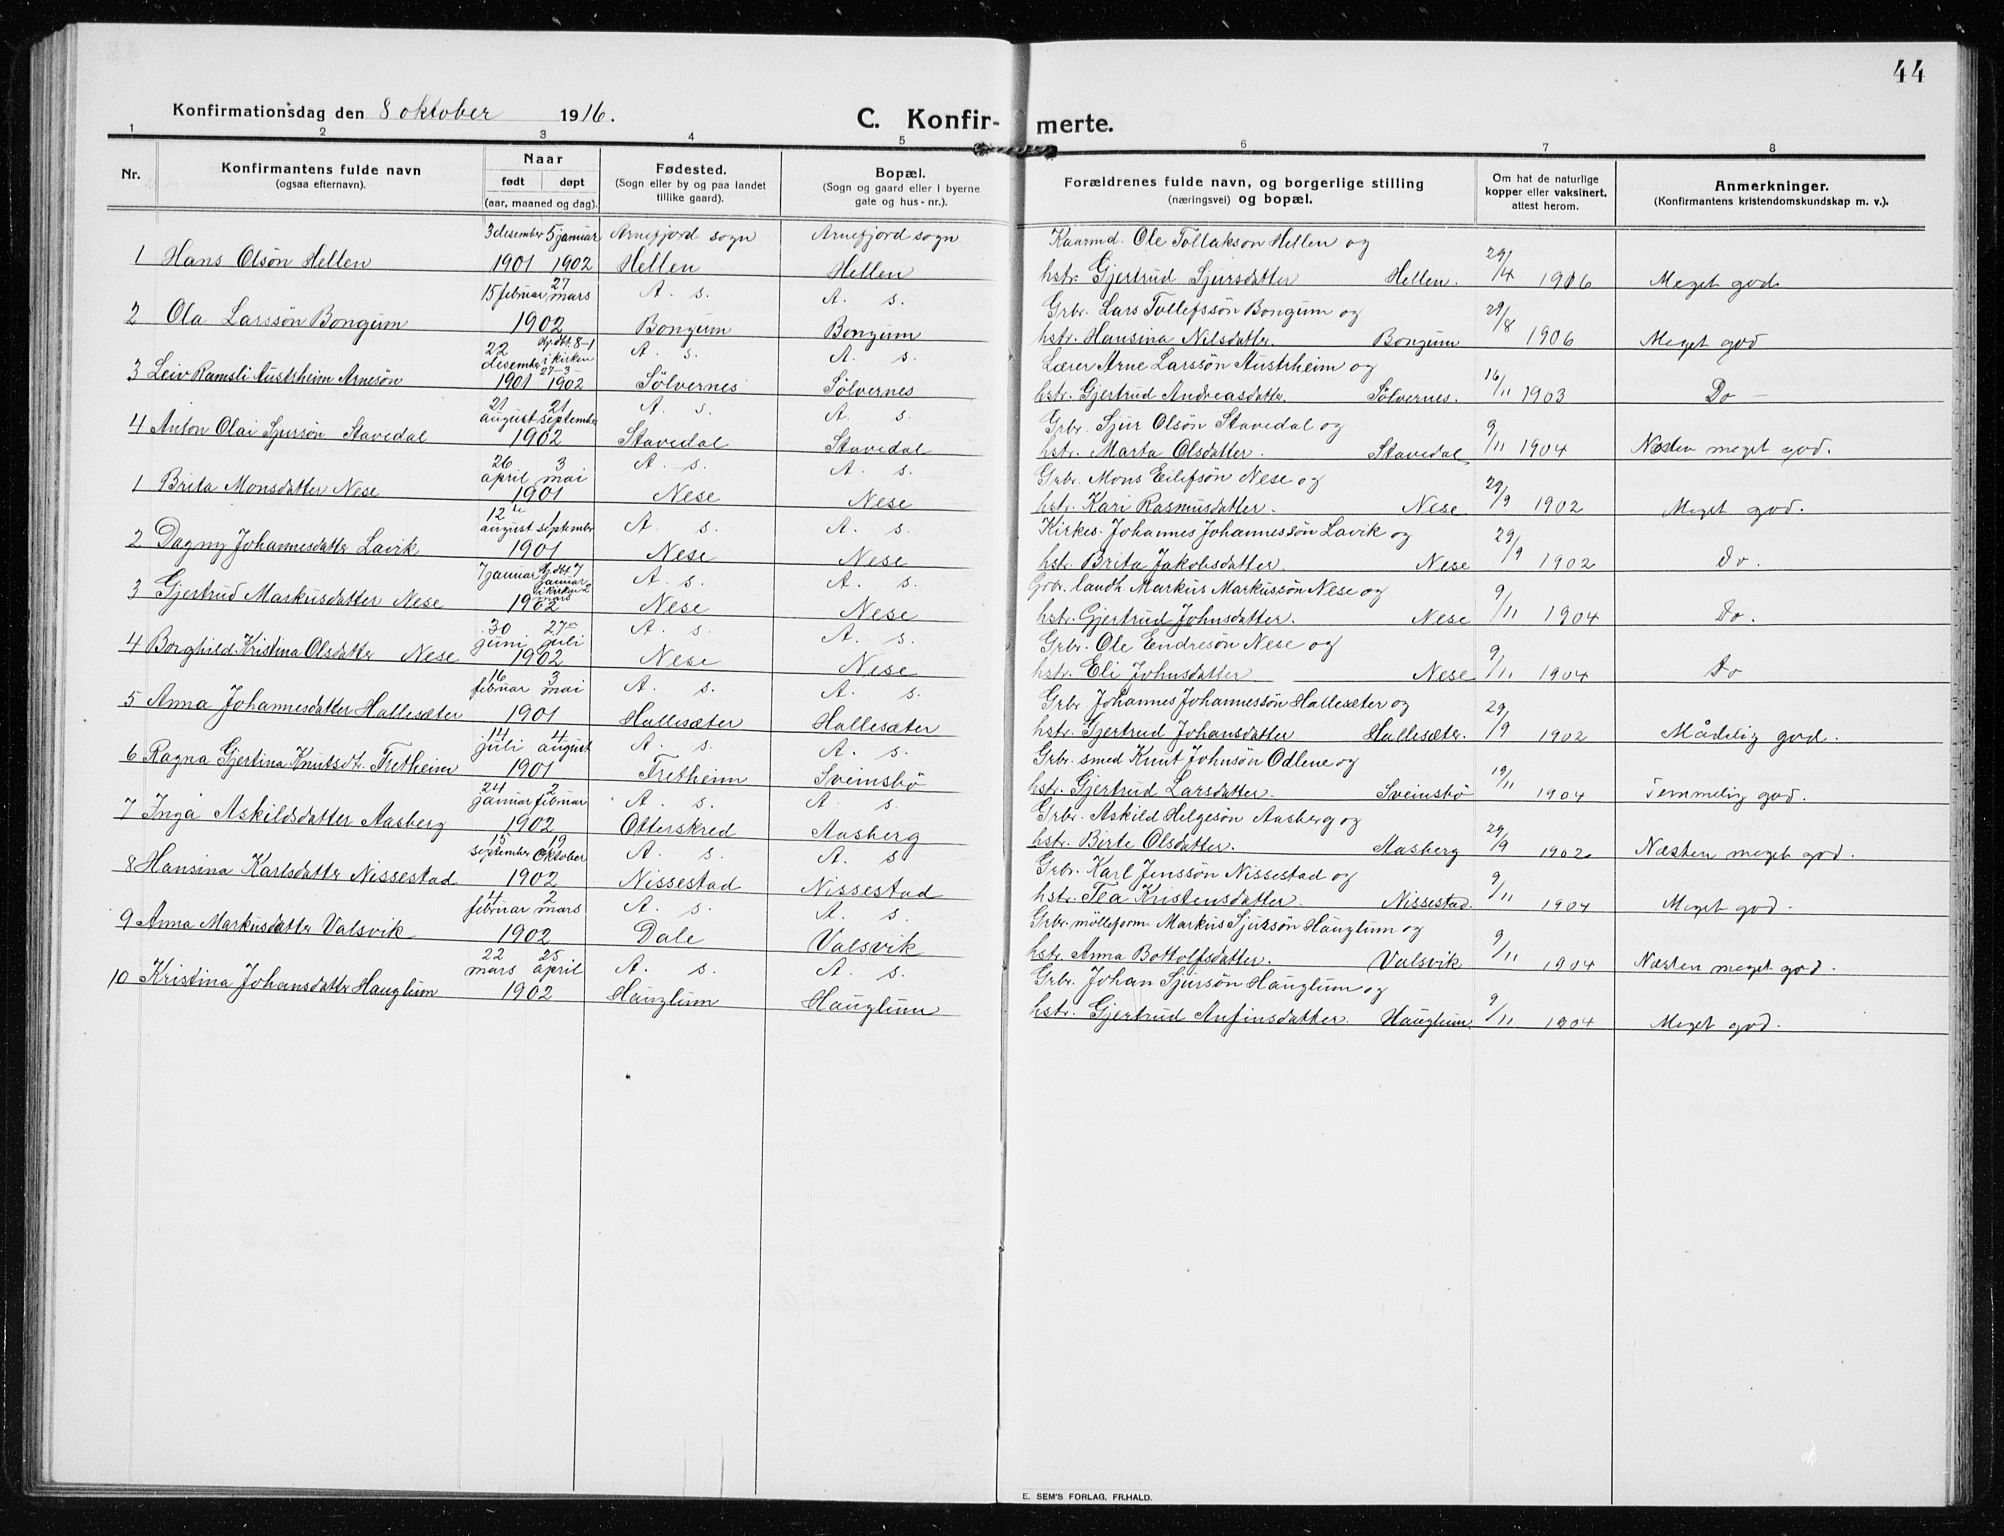 44
Konfirmationsdag den 8 oktober 1916.
C. Konfir- merte.
1 2 3 4 5 6 7 8
Nr.
Konfirmantens fulde navn
(ogsaa efternavn).
Naar
født døpt
(aar, maaned og dag).
Fødested.
(Sogn eller by og paa landet
tillike gaard).
Bopæl.
(Sogn og gaard eller i byerne
gate og hus-nr.).
Forældrenes fulde navn, og borgerlige stilling
(næringsvei) og bopæl.
Om hat de naturlige
kopper eller vaksinert,
attest herom.
Anmerkninger.
(Konfirmantens kristendomskundskap m. v.).
3 desember 5 januar Arnefjord sogn Arnefjord sogn Kaarmd. Ole Tollakson Hellen og
1 Hans Olsøn Hellen 1901 1902 Hellen Hellen hstr. Gjertrud Sjursdatter Hellen. 29/4 1906 Meget god
15 februar 27 mars A. s. A. s. Grbr. Lars Tollefssön Bongum og
2 Ola Larssøn Bongum 1902 Bongum Bongum hstr. Hansina Nilsdatter. Bongum 29/8 1906 Meget god
22 desember Hj. dbt. 8-1 i kirken 27-3- A. s. A. s. Lærer Arne Larssøn Austrheim og
3 Leiv Ramsli Austrheim Arnesøn 1901 1902 Sölvernes Sölvernes hstr. Gjertrud Andreasdatter. Sölvernes. 16/11 1903 Do -
21 august 21 september A. s. A. s. Grbr. Sjur Olsøn Stavedal og
4 Anton Olai Sjursøn Stavedal 1902 Stavedal Stavedal hstr. Marta Olsdatter. Stavedal 9/11 1904 Næsten meget god.
26 april 3 mai A. s. A. s. Grbr. Mons Eilifsön Nese og
1 Brita Monsdatter Nese 1901 Nese Nese hstr. Kari Rasmusdatter. Nese 29/9 1902 Meget god.
12te august 1 september A. s. A. s. Kirkes. Johannes Johannessön Lavik og
2 Dagny Johannesdatter Lavik 1901 Nese Nese hstr. Brita Jakobsdatter. Nese 29/9 1902 Do.
7 januar Hj. dbt. 7 januar i kirken 2 mars A. s. A. s. Grbr. landh Markus Markussön Nese og
3 Gjertrud Markusdatter Nese 1902 Nese Nese hstr. Gjertrud Johnsdatter. Nese 9/11 1904 Do.
30 juni 27 juli A. s. A. s. Grbr. Ole Endresön Nese og
4 Borghild Kristina Olsdatter Nese 1902 Nese Nese hstr. Eli Johnsdatter Nese 9/11 1904 Do
16 februar 3 mai A. s. A. s. Grbr Johannes Johannessön Hallesæter og
5 Anna Johannesdatter Hallesæter 1901 Hallesæter Hallesæter hstr. Gjertrud Johansdatter Hallesæter. 29/9 1902 Mådelig god.
14 juli 4 august A. s. A. s. Grbr. smed Knut Johnsön Odlene og
6 Ragna Gjertina Knutsdtr. Fretheim 1901 Fretheim Sveinsbö hstr. Gjertrud Larsdatter. Sveinsbö 19/11 1904 Temmelig god.
24 januar 2 februar A. s. A. s. Grbr. Askild Helgesön Aasberg og
7 Inga Askildsdatter Aasberg 1902 Otterskred Aasberg hstr. Birte Olsdatter. Aasberg 29/9 1902 Næsten meget god.
15 september 19 Oktober A. s. A. s Grbr. Karl Jenssön Nissestad og
8 Hansina Karlsdatter Nissestad 1902 Nissestad Nissestad hstr. Tea Kristensdatter. Nissestad. 9/11 1904 Meget god.
4 februar 2 mars A. s. A. s. Grbr. mölleform Markus Sjursön Hauglum og
9 Anna Markusdatter Valsvik 1902 Dale Valsvik hstr. Anna Bottolfsdatter. Valsvik 9/11 1904 Næsten meget god.
22 mars 25 april A. s. A. s. Grbr. Johan Sjursön Hauglum og
10 Kristina Johansdatter Hauglum 1902 Hauglum Hauglum hstr. Gjertrud Anfinsdatter. Hauglum 9/11 1904 Meget god.
E. SEM'S FORLAG, FR.HALD.